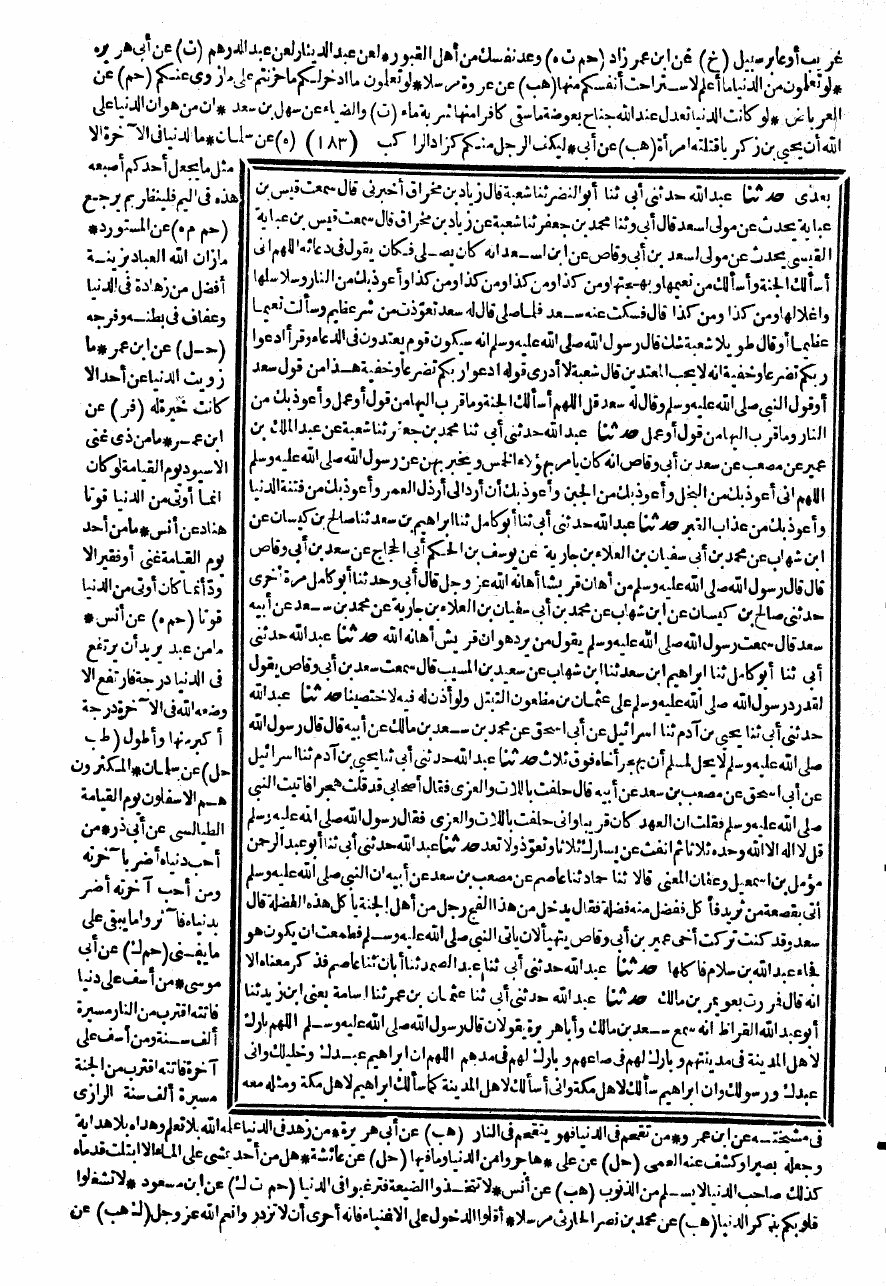 غريب أو عابر سبيل (خ) عن ابن عمر زاد (حم ت ه) وعد نفسك من أهل القبور * لعن عبد الدينار لعن عبد الدرهم (ت) عن أبى هريرة
* لو تعلمون من الدنيا ما أعلم لاستراحت أنفسكم منها (هب) عن عروة مرسلا * لو تعلمون ما ادخر لكم ما حزنتم على ما زوى عنكم (حم) عن
العرباض * لو كانت الدنيا تعدل عند الله جناح بعوضة ما سقى كافرا منها شربة ماء (ت) والضياء عن سهل بن سعد * ان من هوان الدنيا على
الله أن يحيى بن زكريا قتلته امرأة (هب) عن أبى * ليكف الرجل منكم كزاد الراكب (١٨٣) (ه) عن سلمان * ما الدنيا فى الآخرة الا
بعدى حدثنا عبد الله حدثنى أبى ثنا أبو النضر ثنا شعبة قال زياد بن مخراق أخبرنى قال سمعت قيس بن
عباية يحدث عن مولى لسعد قال أبى وثنا محمد بن جعفر ثنا شعبة عن زياد بن مخراق قال سمعت قيس بن عباية
القيسى يحدث عن مولى لسعد بن أبى وقاص عن ابن لسعد انه كان يصلى فكان يقول فى دعائه اللهم انى
أسألك الجنة وأسألك من نعيمها وبهجتها ومن كذا ومن كذا ومن كذا ومن كذا وأعوذ بك من النار وسلاسلها
واغلالها ومن كذا ومن كذا قال فسكت عنه سعد فلما صلى قال له سعد تعوذت من شر عظيم وسألت نعيما
عظيما أو قال طويلا شعبة شك قال رسول الله صلى الله عليه وسلم انه سيكون قوم يعتدون فى الدعاء وقرأ ادعوا
ربكم تضرعا وخفية انه لا يحب المعتدين قال شعبة لا أدرى قوله ادعوا ربكم تضرعا وخفية هذا من قول سعد
أو قول النبى صلى الله عليه وسلم وقال له سعد قل اللهم أسألك الجنة وما قرب اليها من قول أو عمل وأعوذ بك من
النار وما قرب اليها من قول أو عمل حدثنا عبد الله حدثنى أبى ثنا محمد بن جعفر ثنا شعبة عن عبد الملك بن
عمير عن مصعب عن سعد بن أبى وقاص انه كان يأمر بهؤلاء الخمس ويخبر بهن عن رسول الله صلى الله عليه وسلم
اللهم انى أعوذ بك من البخل وأعوذ بك من الجبن وأعوذ بك أن أرد الى أرذل العمر وأعوذ بك من فتنة الدنيا
وأعوذ بك من عذاب القبر حدثنا عبد الله حدثنى أبى ثنا أبو كامل ثنا ابراهيم بن سعد ثنا صالح بن كيسان عن
ابن شهاب عن محمد بن أبى سفيان بن العلاء بن جارية عن يوسف بن الحكم أبى الحجاج عن سعد بن أبى وقاص
قال قال رسول الله صلى الله عليه وسلم من أهان قريشا أهانه الله عز وجل قال أبى وحدثنا أبو كامل مرة أخرى
حدثنى صالح بن كيسان عن ابن شهاب عن محمد بن أبى سفيان بن العلاء بن جارية عن محمد بن سعد عن أبيه
سعد قال سمعت رسول الله صلى الله عليه وسلم يقول من يرد هوان قريش أهانه الله حدثنا عبد الله حدثنى
أبى ثنا أبو كامل ثنا ابراهيم ابن سعد ثنا ابن شهاب عن سعيد بن المسيب قال سمعت سعد بن أبى وقاص يقول
لقد رد رسول الله صلى الله عليه وسلم على عثمان بن مظعون التبتل ولو أذن له فيه لاختصينا حدثنا عبد الله
حدثنى أبى ثنا يحيى بن آدم ثنا اسرائيل عن أبى اسحق عن محمد بن سعد بن مالك عن أبيه قال قال رسول الله
صلى الله عليه وسلم لا يحل لمسلم أن يهجر أخاه فوق ثلاث حدثنا عبد الله حدثنى أبى ثنا يحيى بن آدم ثنا اسرائيل
عن أبى اسحق عن مصعب بن سعد عن أبيه قال حلفت باللات والعزى فقال أصحابى قد قلت هجرا فأتيت النبى
صلى الله عليه وسلم فقلت ان العهد كان قريبا وانى حلفت باللات والعزى فقال رسول الله صلى الله عليه وسلم
قل لا اله الا الله وحده ثلاثا ثم انفث عن يسارك ثلاثا وتعوذ ولا تعد حدثنا عبد الله حدثنى أبى ثنا أبو عبد الرحمن
مؤمل بن اسمعيل وعفان المعنى قالا ثنا حماد ثنا عاصم عن مصعب بن سعد عن أبيه ان النبى صلى الله عليه وسلم
أتى بقصعة من ثريد فأكل ففضل منه فضلة فقال يدخل من هذا الفج رجل من أهل الجنة يأكل هذه الفضلة قال
سعد وقد كنت تركت أخى عمير بن أبى وقاص يتهيأ لان يأتى النبى صلى الله عليه وسلم فطمعت ان يكون هو
فجاء عبد الله بن سلام فأكلها حدثنا عبد الله حدثنى أبى ثنا عبد الصمد ثنا أبان ثنا عاصم فذكر معناه الا
انه قال فررت بعويمر بن مالك حدثنا عبد الله حدثنى أبى ثنا عثمان بن عمر ثنا اسامة يعنى ابن زيد ثنا
أبو عبد الله القراظ انه سمع سعد بن مالك وأبا هريرة يقولان قال رسول الله صلى الله عليه وسلم اللهم بارك
لاهل المدينة فى مدينتهم وبارك لهم فى صاعهم وبارك لهم فى مدهم اللهم ان ابراهيم عبدك وخليلك وانى
عبدك ورسولك وان ابراهيم سألك لاهل مكة وانى أسألك لاهل المدينة كما سألك ابراهيم لاهل مكة ومثله معه
مثل ما يجعل أحدكم أصبعه
هذه فى اليم فلينظر بم يرجع
(حم م ه) عن المستورد *
ما زان الله العباد بزينة
أفضل من زهادة فى الدنيا
وعفاف فى بطنه وفرجه
(حل) عن ابن عمر * ما
زويت الدنيا عن أحد الا
كانت خيرة له (فر) عن
ابن عمر * ما من ذى غنى
الا سيود يوم القيامة لو كان
انما أوتى من الدنيا قوتا
هناد عن أنس * ما من أحد
يوم القيامة غنى أو فقير الا
ود أنما كان أوتى من الدنيا
قوتا (حم ه) عن أنس *
ما من عبد يريد أن يرتفع
فى الدنيا درجة فارتفع الا
وضعه الله فى الآخرة درجة
أكبر منها وأطول (طب
حل) عن سلمان * المكثرون
هم الاسفلون يوم القيامة
الطيالسى عن أبى ذر * من
أحب دنياه أضر بآخرته
ومن أحب آخرته أضر
بدنياه فآثروا ما يبقى على
ما يفنى (حم ك) عن أبى
موسى * من أسف على دنيا
فاتته اقترب من النار مسيرة
ألف سنة ومن أسف على
آخرة فاتته اقترب من الجنة
مسيرة ألف سنة الرازى
فى مشيخته عن ابن عمرو * من تقحم فى الدنيا فهو يتقحم فى النار (هب) عن أبى هريرة * من زهد فى الدنيا علمه الله بلا تعلم وهداه بلا هداية
وجعله بصيرا وكشف عنه العمى (حل) عن على * هاجروا من الدنيا وما فيها (حل) عن عائشة * هل من أحد يمشى على الماء الا ابتلت قدماه
كذلك صاحب الدنيا لا يسلم من الذنوب (هب) عن أنس * لا تتخذوا الضيعة فترغبوا فى الدنيا (حم ت ك) عن ابن مسعود * لا تشغلوا
قلوبكم بذكر الدنيا (هب) عن محمد بن نصر الحارثى مرسلا * أقلوا الدخول على الاغنياء فانه أحرى أن لا تزدروا نعم الله عز وجل (ك هب) عن